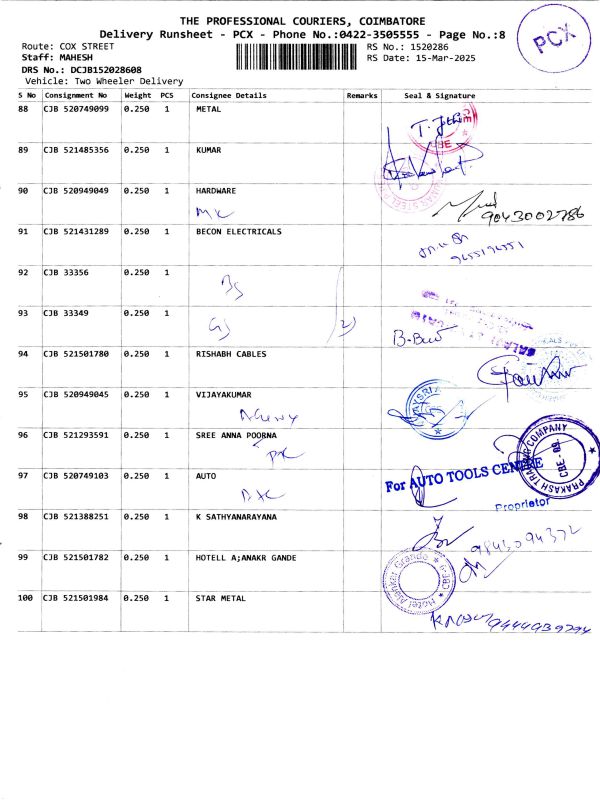 THE PROFESSIONAL COURIERS, COIMBATORE
Delivery Runsheet - PCX - Phone No.:0422-3505555 - Page No.:8
PCX
Route: COX STREET RS No.: 1520286
Staff: MAHESH RS Date: 15-Mar-2025
DRS No.: DCJB152028608
Vehicle: Two Wheeler Delivery
S No Consignment No Weight PCS Consignee Details Remarks Seal & Signature
88 CJB 520749099 0.250 1 METAL
89 CJB 521485356 0.250 1 KUMAR
90 CJB 520949049 0.250 1 HARDWARE
9043002786
91 CJB 521431289 0.250 1 BECON ELECTRICALS
92 CJB 33356 0.250 1
93 CJB 33349 0.250 1
94 CJB 521501780 0.250 1 RISHABH CABLES
95 CJB 520949045 0.250 1 VIJAYAKUMAR
96 CJB 521293591 0.250 1 SREE ANNA POORNA
PRAKASH TRADING COMPANY
CBE - 09.
97 CJB 520749103 0.250 1 AUTO
For AUTO TOOLS CENTRE
Proprietor
98 CJB 521388251 0.250 1 K SATHYANARAYANA
9843094372
99 CJB 521501782 0.250 1 HOTELL A;ANAKR GANDE
Hotel Alankar Grande
100 CJB 521501984 0.250 1 STAR METAL
9444939294